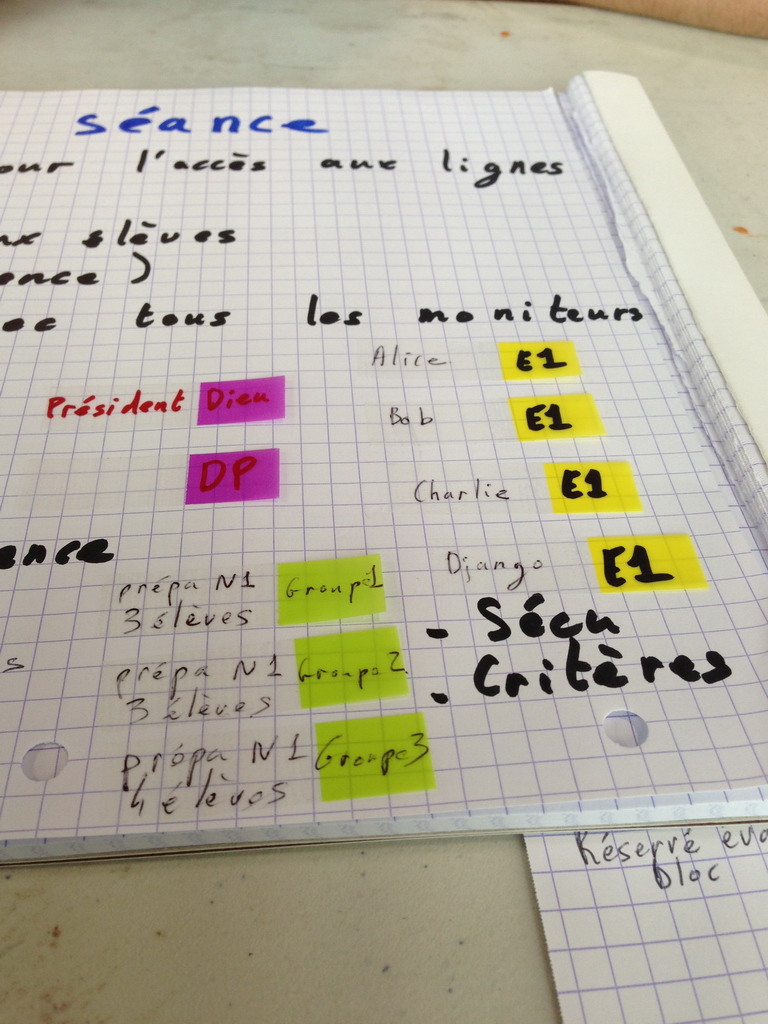 séance
our l'accès aux lignes
ux élèves
ence )
ec tous les moniteurs
Alice E1
Président Dieu
Bob E1
DP
Charlie E1
ence
Django E1
prépa N1 Groupe1
3 élèves
- Sécu
s
prépa N1 Groupe2
- Critères
3 élèves
prépa N1 Groupe3
4 élèves
Réservé eva
bloc